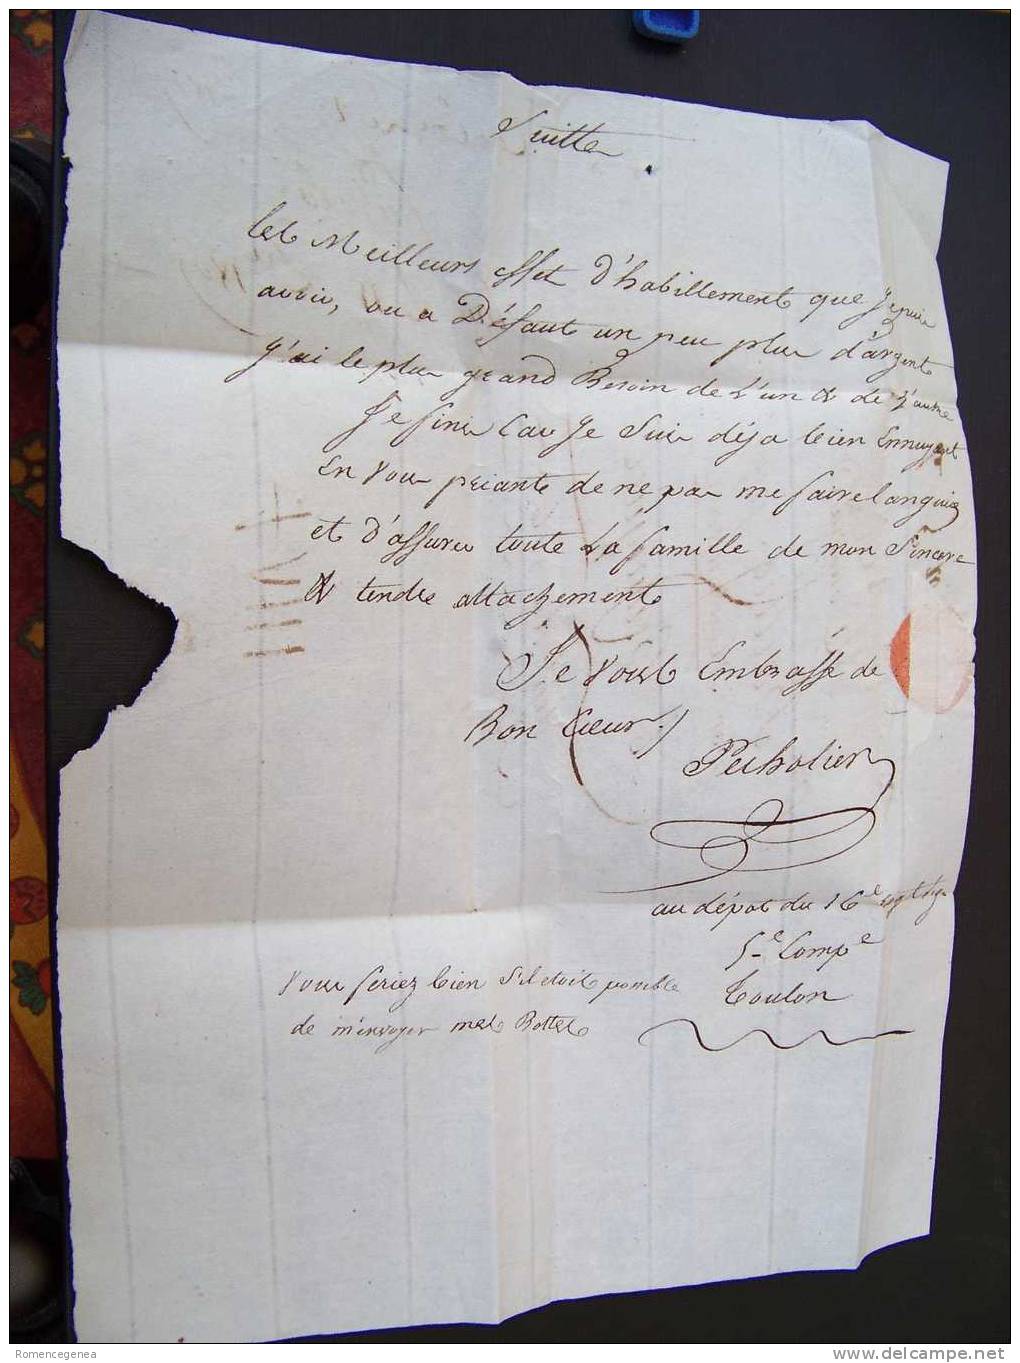 Suitte
les Meilleurs effet d'habillement que Je puis
avoir, ou a Défaut un peu plus d'argent
J'ai le plus grand Besoin de L'un & de L'autre
Je finis Car Je Suis déja bien Ennuyant
En Vous priante de ne pas me faire languir
et d'assurer toute La famille de mon Sincere
& tendre attachement
Je Vous Embrasse de
Bon Cœur
Pecholier
au dépot du 16e
5e Compe
Toulon
Vous seriez bien S'il etoit possible
de m'envoyer mes Bottes
Romencegenea
www.delcampe.net